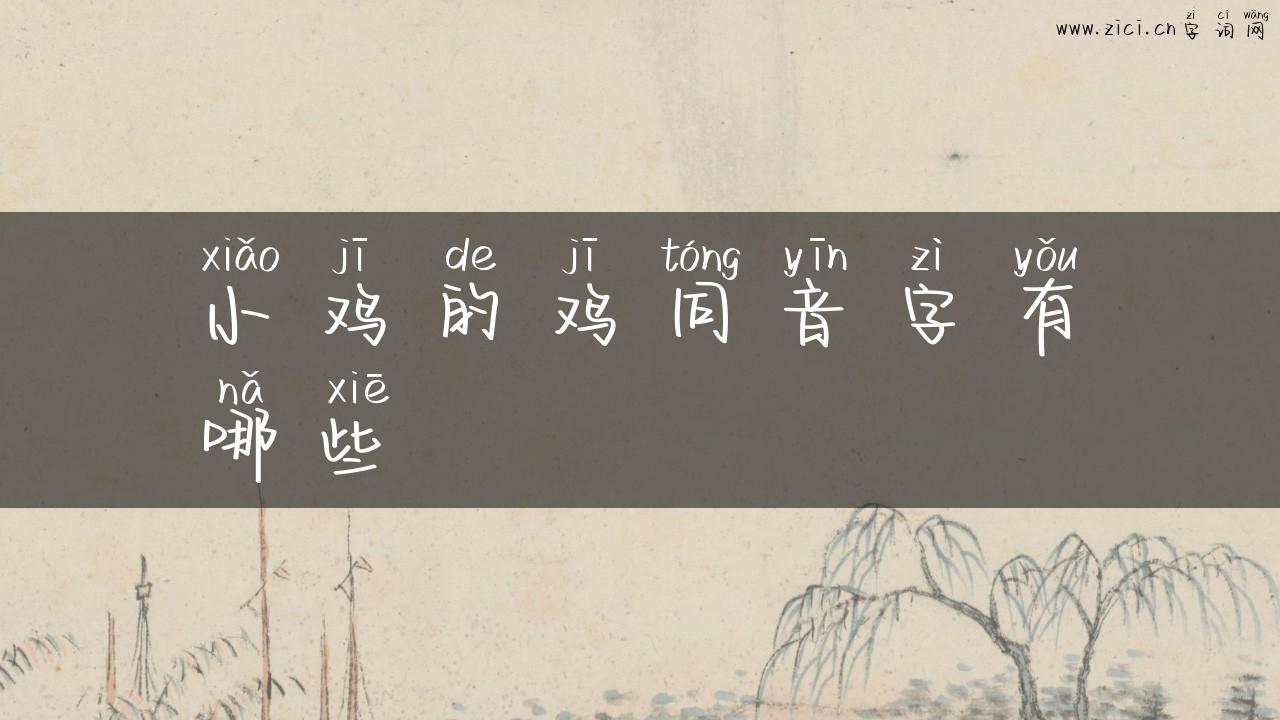 zì cí wǎng
www.zici.cn 字词网
xiǎo jī de jī tóng yīn zì yǒu
小鸡的鸡同音字有
nǎ xiē
哪些